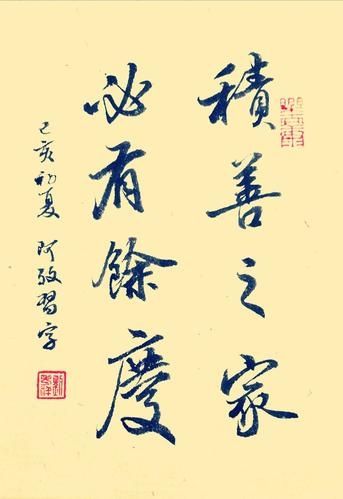 積善之家
必有餘慶
己亥初夏 阿敃習字